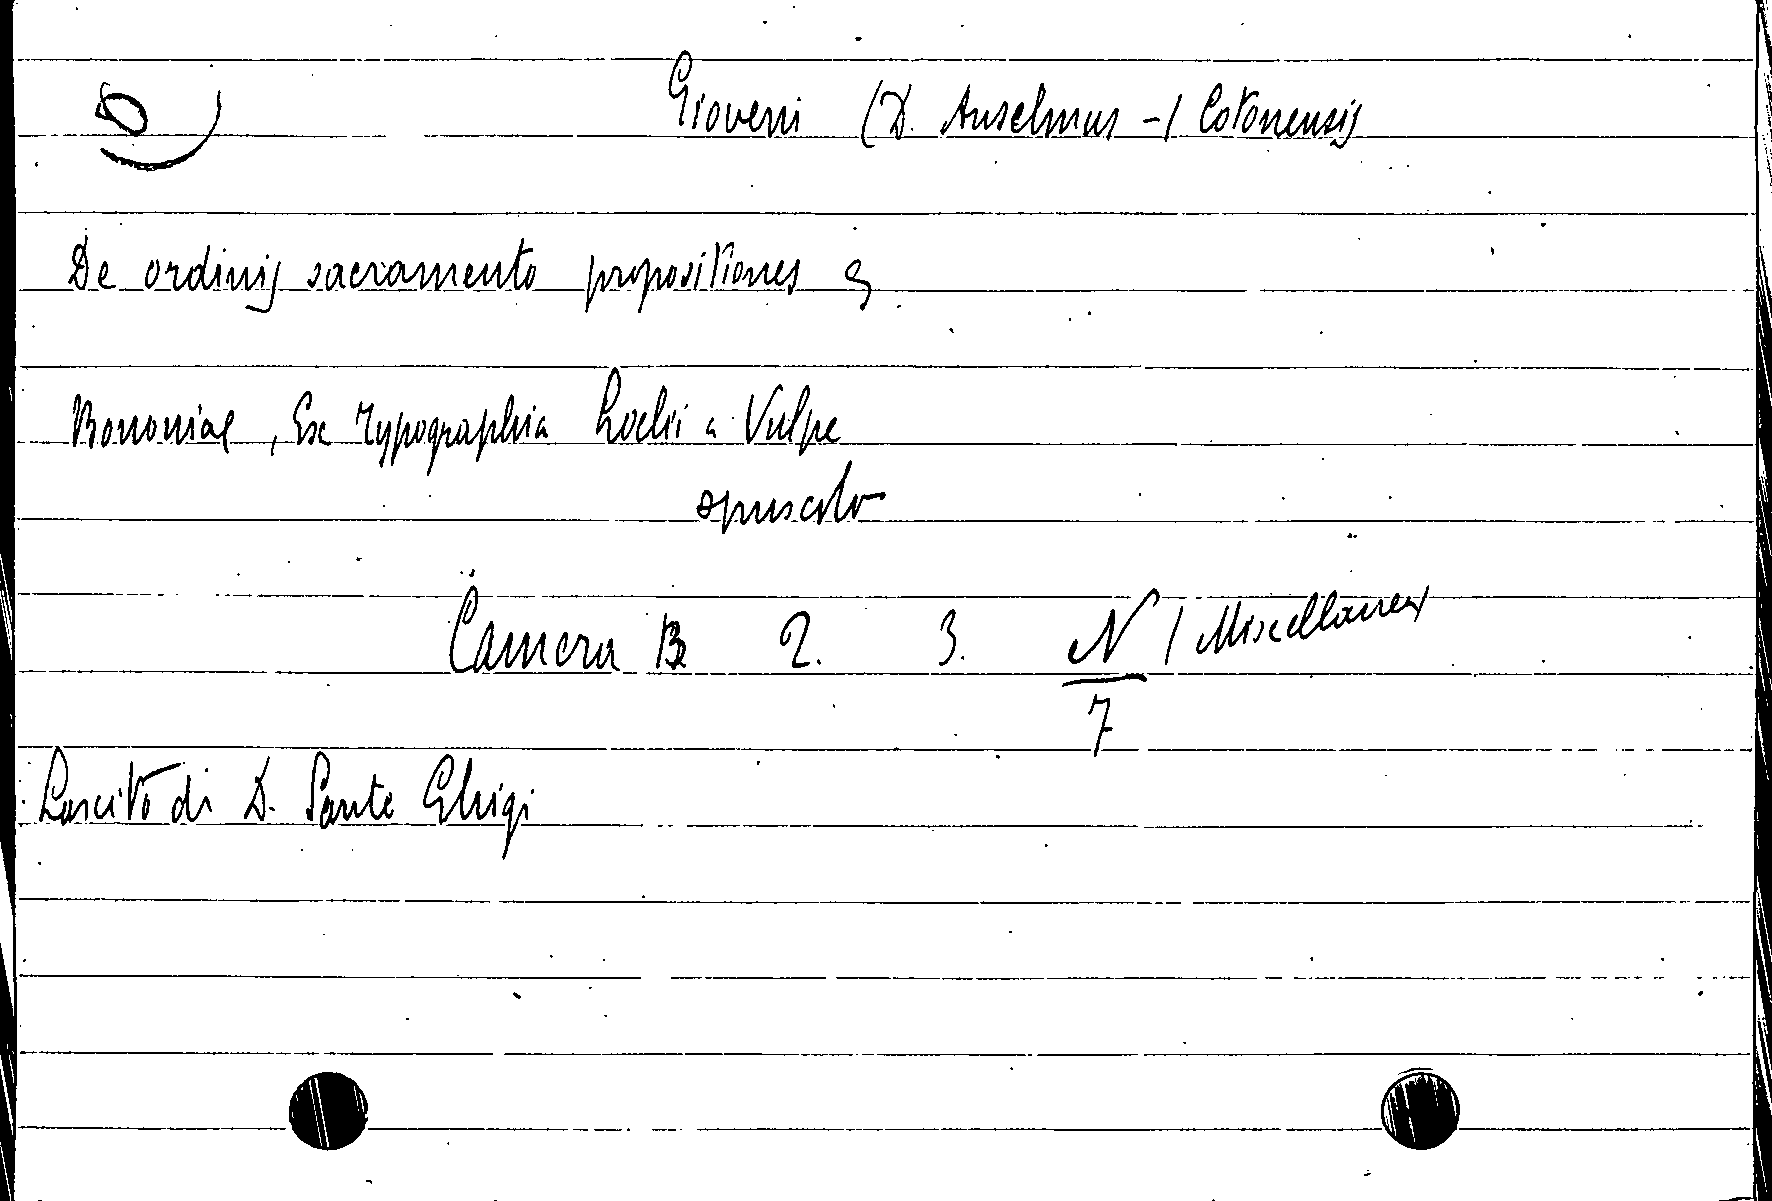 Gioveni (D. Anselmus -) Cotonensis
De ordinis sacramento propositiones
Bononiae, Ex Typographia Laelii a Vulpe
opuscolo
Camera B 2. 3. N / Miscellanea
7
Lascito di D. Sante Ghigi